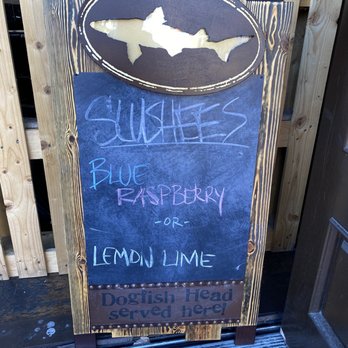 SLUSHIES
BLUE
RASPBERRY
-OR-
LEMON LIME
Dogfish Head
served here!